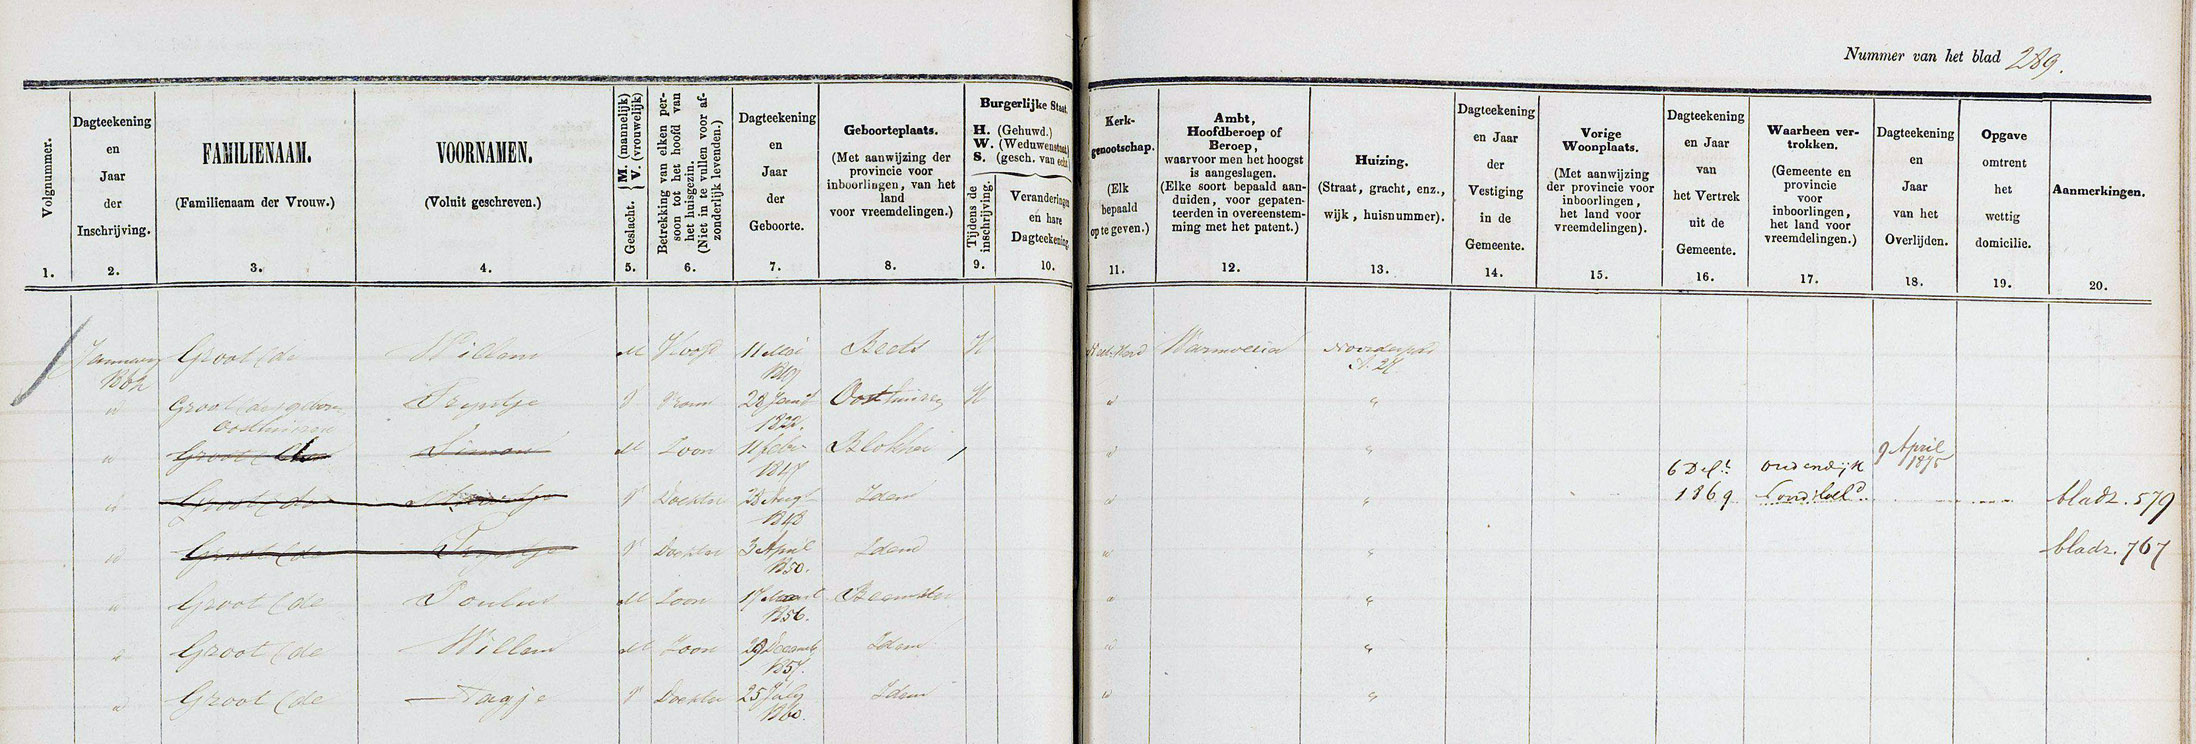 Nummer van het blad 289.
Volgnummer.
1.
Dagteekening
en
Jaar
der
Inschrijving.
2.
FAMILIENAAM.
(Familienaam der Vrouw.)
3.
VOORNAMEN.
(Voluit geschreven.)
4.
Geslacht. { M. (mannelijk)
V. (vrouwelijk)
5.
Betrekking van elken per-
soon tot het hoofd van
het huisgezin.
(Niet in te vullen voor af-
zonderlijk levenden.)
6.
Dagteekening
en
Jaar
der
Geboorte.
7.
Geboorteplaats.
(Met aanwijzing der
provincie voor
inboorlingen, van het
land
voor vreemdelingen.)
8.
Burgerlijke Staat.
H. (Gehuwd.)
W. (Weduwenstaat.)
S. (gesch. van echt.)
Tijdens de
inschrijving.
9.
Veranderingen
en hare
Dagteekening
10.
Kerk-
genootschap.
(Elk
bepaald
op te geven.)
11.
Ambt,
Hoofdberoep of
Beroep,
waarvoor men het hoogst
is aangeslagen.
(Elke soort bepaald aan-
duiden, voor gepaten-
teerden in overeenstem-
ming met het patent.)
12.
Huizing.
(Straat, gracht, enz.,
wijk, huisnummer).
13.
Dagteekening
en Jaar
der
Vestiging
in de
Gemeente.
14.
Vorige
Woonplaats.
(Met aanwijzing
der provincie voor
inboorlingen,
het land voor
vreemdelingen).
15.
Dagteekening
en Jaar
van
het Vertrek
uit de
Gemeente.
16.
Waarheen ver-
trokken.
(Gemeente en
provincie
voor
inboorlingen,
het land voor
vreemdelingen.)
17.
Dagteekening
en
Jaar
van het
Overlijden.
18.
Opgave
omtrent
het
wettig
domicilie.
19.
Aanmerkingen.
20.
January Groot (de Willem M Hoofd 11 Mei Beets H Warmoezier
1862
Groot (de geboren Trijntje V Vrouw 28 Oosthuizen H "
Oosthuizen 1822.
" Groot (de Simon M Zoon 11 febr Blokker " " 9 April
1847 1875
" Groot (de V Dochter 28 Aug Idem " " 6 Oudendijk bladz. 579
1848 1869
" Groot (de Trijntje V Dochter 3 April Idem " " bladz. 767
1850.
" Groot (de Paulus M Zoon 17 Maart Beemster " "
1856.
" Groot (de Willem M Zoon 29 Decemb Idem " "
1857.
" Groot (de Aagje V Dochter 25 July Idem " "
1860.